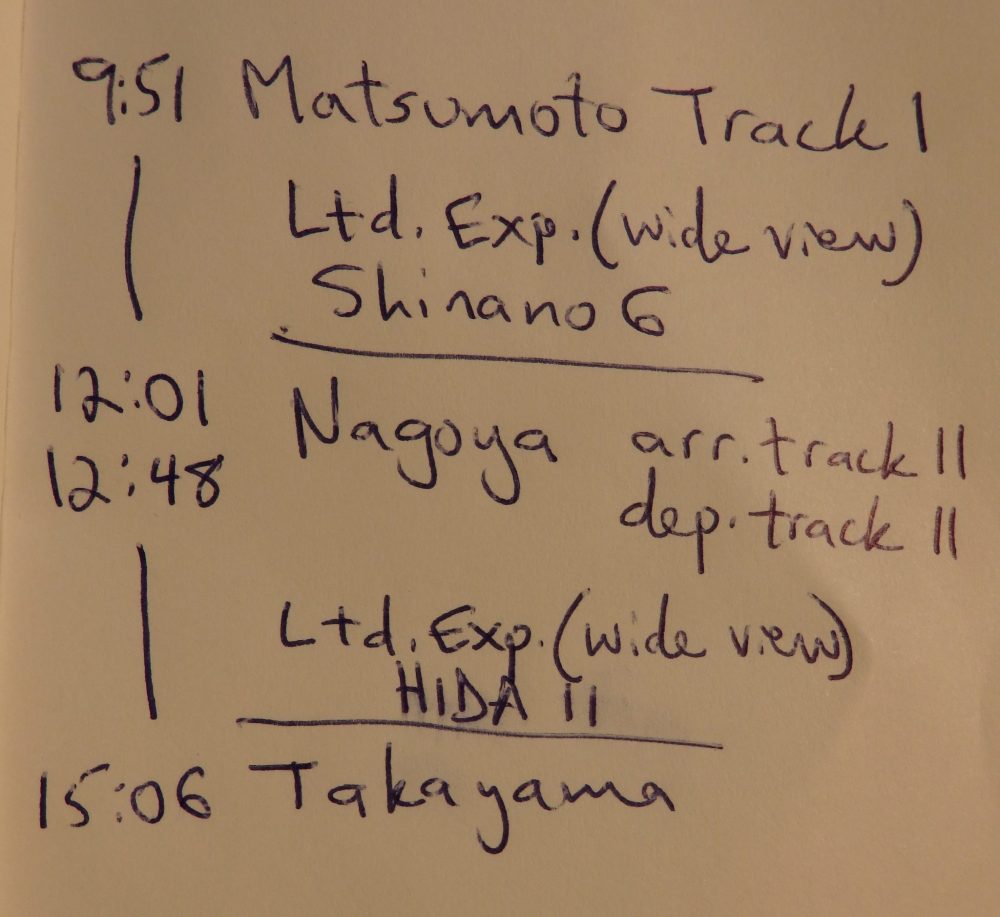 9:51 Matsumoto Track 1
Ltd. Exp. (wide view)
Shinano 6
12:01 Nagoya arr. track 11
12:48 dep. track 11
Ltd. Exp. (wide view)
HIDA 11
15:06 Takayama